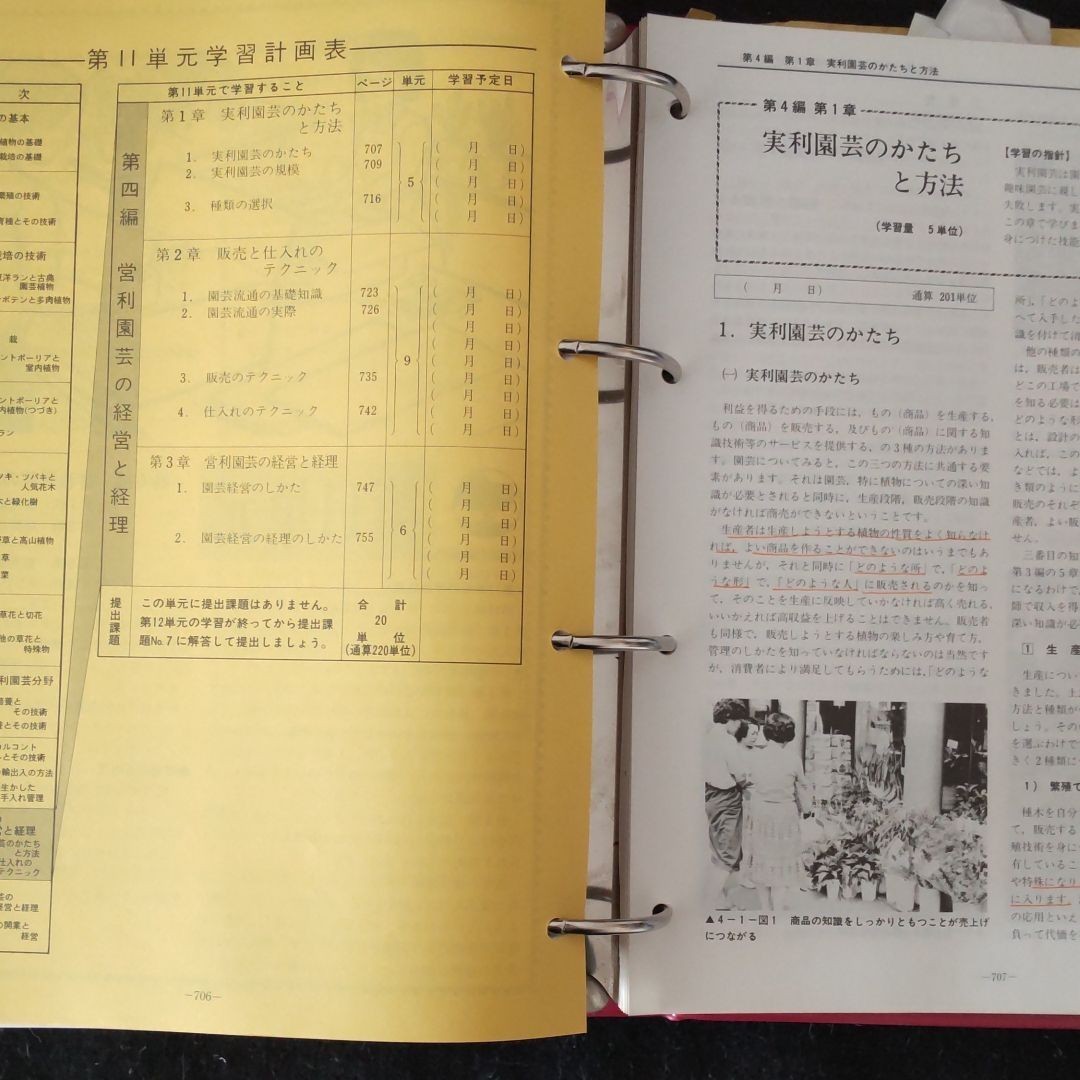 第11単元学習計画表
次
の基本
植物の基礎
栽培の基礎
繁殖の技術
育種とその技術
栽培の技術
東洋ランと古典
園芸植物
サボテンと多肉植物
栽
セントポーリアと
室内植物
ントポーリアと
内植物(つづき)
ラン
ツキ・ツバキと
人気花木
木と緑化樹
野草と高山植物
草
菜
草花と切花
他の草花と
特殊物
利園芸分野
培養と
その技術
養とその技術
ルコント
ルとその技術
輸出入の方法
生かした
手入れ管理
営と経理
芸のかたち
と方法
仕入れの
テクニック
芸の
経営と経理
の開業と
経営
第11単元で学習すること
ページ
単元
学習予定日
第四編 営利園芸の経営と経理
第1章 実利園芸のかたち
と方法
1. 実利園芸のかたち 707
2. 実利園芸の規模 709
3. 種類の選択 716
5
( 月 日)
( 月 日)
( 月 日)
( 月 日)
( 月 日)
第2章 販売と仕入れの
テクニック
1. 園芸流通の基礎知識 723
2. 園芸流通の実際 726
3. 販売のテクニック 735
4. 仕入れのテクニック 742
9
( 月 日)
( 月 日)
( 月 日)
( 月 日)
( 月 日)
( 月 日)
( 月 日)
( 月 日)
( 月 日)
第3章 営利園芸の経営と経理
1. 園芸経営のしかた 747
2. 園芸経営の経理のしかた 755
6
( 月 日)
( 月 日)
( 月 日)
( 月 日)
( 月 日)
( 月 日)
提出課題
この単元に提出課題はありません。
第12単元の学習が終ってから提出課
題No.7に解答して提出しましょう。
合 計
20
単 位
(通算220単位)
―706―
第4編 第1章 実利園芸のかたちと方法
第4編 第1章
実利園芸のかたち
と方法
(学習量 5単位)
( 月 日) 通算 201単位
1. 実利園芸のかたち
㈠ 実利園芸のかたち
利益を得るための手段には、もの（商品）を生産する、
もの（商品）を販売する、及びもの（商品）に関する知
識技術等のサービスを提供する、の3種の方法がありま
す。園芸についてみると、この三つの方法に共通する要
素があります。それは園芸、特に植物についての深い知
識が必要とされると同時に、生産段階、販売段階の知識
がなければ商売ができないということです。
生産者は生産しようとする植物の性質をよく知らなけ
れば、よい商品を作ることができないのはいうまでもあ
りませんが、それと同時に「どのような所」で、「どのよ
うな形」で、「どのような人」に販売されるのかを知っ
て、そのことを生産に反映していかなければ高く売れる、
いいかえれば高収益を上げることはできません。販売者
も同様で、販売しようとする植物の楽しみ方や育て方、
管理のしかたを知っていなければならないのは当然です
が、消費者により満足してもらうためには、「どのような
▲4－1－図1 商品の知識をしっかりともつことが売上げ
につながる
【学習の指針】
実利園芸は園
趣味園芸に親し
失敗します。実
この章で学びま
身につけた技能
所」、「どのよう
へて入手した
識を付けて消
他の種類の
は、販売者は
どこの工場で
を知る必要は
どのような形
とは、設計の
入れば、この
などでは、よ
き類のように
販売のそれぞ
産者、よい販
せん。
三番目の知
第3編の5章
になるわけで
師で収入を得
深い知識が必
1 生 産
生産につい
きました。土
方法と種類が
しょう。その
を選ぶわけで
きく2種類に
1) 繁殖で
種木を自分
て、販売する
殖技術を身に
有しているこ
や特殊になり
に入ります。
の応用といえ
負って代価を
―707―